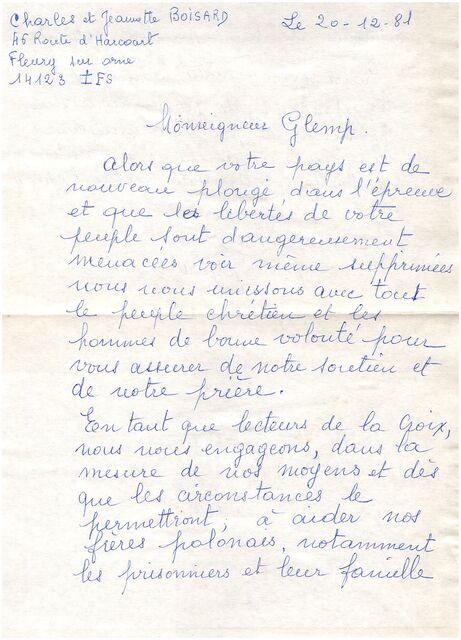 Charles et Jeannette BOISARD
Le 20-12-81
46 Route d'Harcourt
Fleury sur orne
14123 IFS
Monseigneur Glemp.
Alors que votre pays est de
nouveau plongé dans l'épreuve
et que les libertés de votre
peuple sont dangereusement
menacées voir même supprimées
nous nous unissons avec tout
le peuple chrétien et les
hommes de bonne volonté pour
vous assurer de notre soutien et
de notre prière.
En tant que lecteurs de la Croix,
nous nous engageons, dans la
mesure de nos moyens et dès
que les circonstances le
permettront, à aider nos
frères polonais, notamment
les prisonniers et leur famille